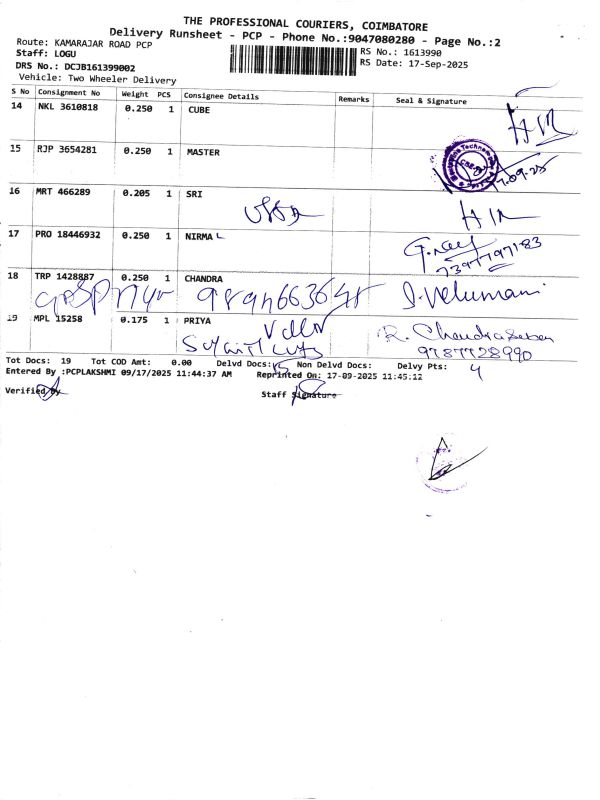 THE PROFESSIONAL COURIERS, COIMBATORE
Delivery Runsheet - PCP - Phone No.:9047080280 - Page No.:2
Route: KAMARAJAR ROAD PCP
RS No.: 1613990
Staff: LOGU
RS Date: 17-Sep-2025
DRS No.: DCJB161399002
Vehicle: Two Wheeler Delivery
S No Consignment No Weight PCS Consignee Details Remarks Seal & Signature
14 NKL 3610818 0.250 1 CUBE
15 RJP 3654281 0.250 1 MASTER
17.09.25
16 MRT 466289 0.205 1 SRI
17 PRO 18446932 0.250 1 NIRMAL
7397797183
18 TRP 1428887 0.250 1 CHANDRA
J. Velumani
19 MPL 15258 0.175 1 PRIYA
R. Chandrasekar
9787728990
Tot Docs: 19 Tot COD Amt: 0.00 Delvd Docs: 15 Non Delvd Docs: Delvy Pts: 4
Entered By :PCPLAKSHMI 09/17/2025 11:44:37 AM Reprinted On: 17-09-2025 11:45:12
Verified By
Staff Signature